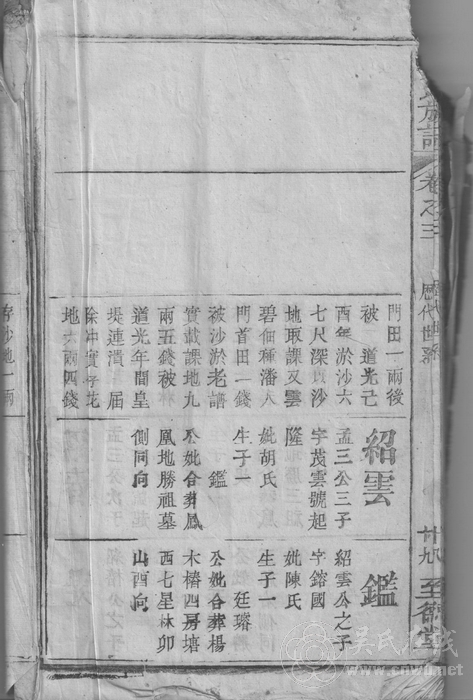 族譜
卷之三
歷代世系
廿九
至德堂
門田一兩後
被 道光己
酉年淤沙六
七尺深 沙
地取課又雲
碧佃種潘人
門首田一錢
被沙淤老譜
實載課地九
兩五錢被
道光年間皇
堤連潰 屆
除冲實存花
地六兩四錢
紹雲
孟三公三子
字茂雲號起
隆
妣胡氏
生子一
鑑
公妣合葬鳳
凰地勝祖墓
側同向
鑑
紹雲公之子
字鎔國
妣陳氏
生子一
廷璿
公妣合葬楊
木樁四房塘
西七星林卯
山酉向
存沙地一兩
吴氏在线
www.cnwu.net